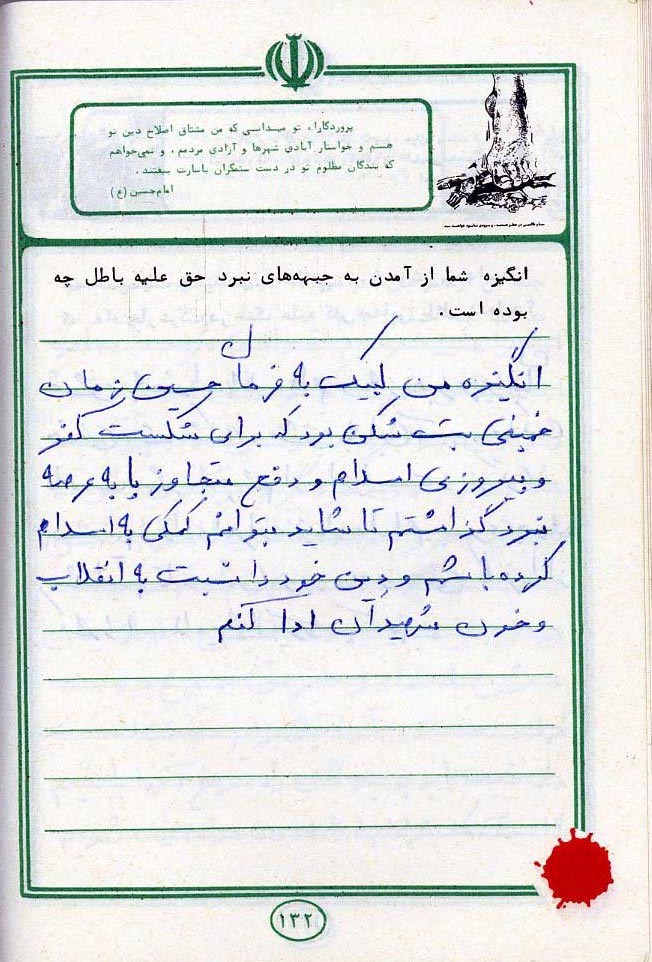 پروردگارا، تو میدانی که من مشتاق اصلاح دین تو
هستم و خواستار آبادی شهرها و آزادی مردمم، و نمی‌خواهم
که بندگان مظلوم تو در دست ستمگران باسارت بیفتند.
امام‌حسین (ع)
انگیزه شما از آمدن به جبهه‌های نبرد حق علیه باطل چه
بوده است.
انگیزه من لبیک به فرمان حسین زمان
خمینی بت شکن بود که برای شکست کفر
و پیروزی اسلام و دفع متجاوز پا به عرصه
نبرد گذاشتم تا شاید بتوانم کمکی به اسلام
کرده باشم و دین خود را نسبت به انقلاب
و خون شهیدان ادا کنم
۱۳۲